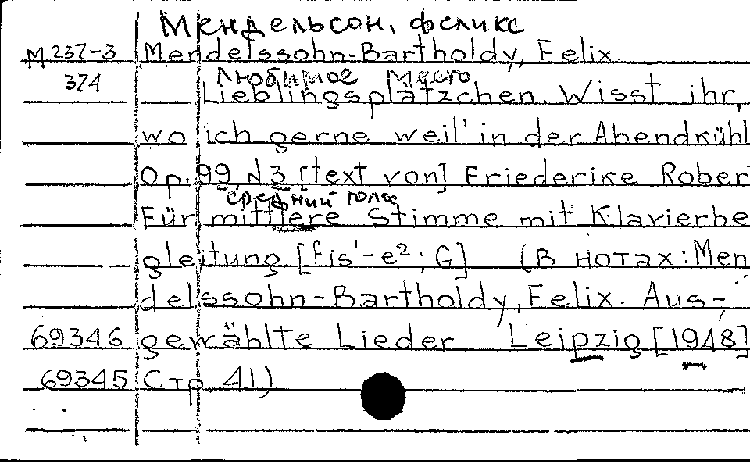 Мендельсон, Феликс
М 237-3 Mendelssohn-Bartholdy, Felix
374 Любимое место
Lieblingsplätzchen Wisst ihr,
wo ich gerne weil' in der Abendkühl
Op. 99, N3 [text von] Friederike Rober
средний голос
Für mittlere Stimme mit Klavierbe
gleitung [fis'-e²; G] (В нотах: Men
delssohn-Bartholdy, Felix. Aus-
69346 gewählte Lieder Leipzig [1948]
69345 Стр 41)